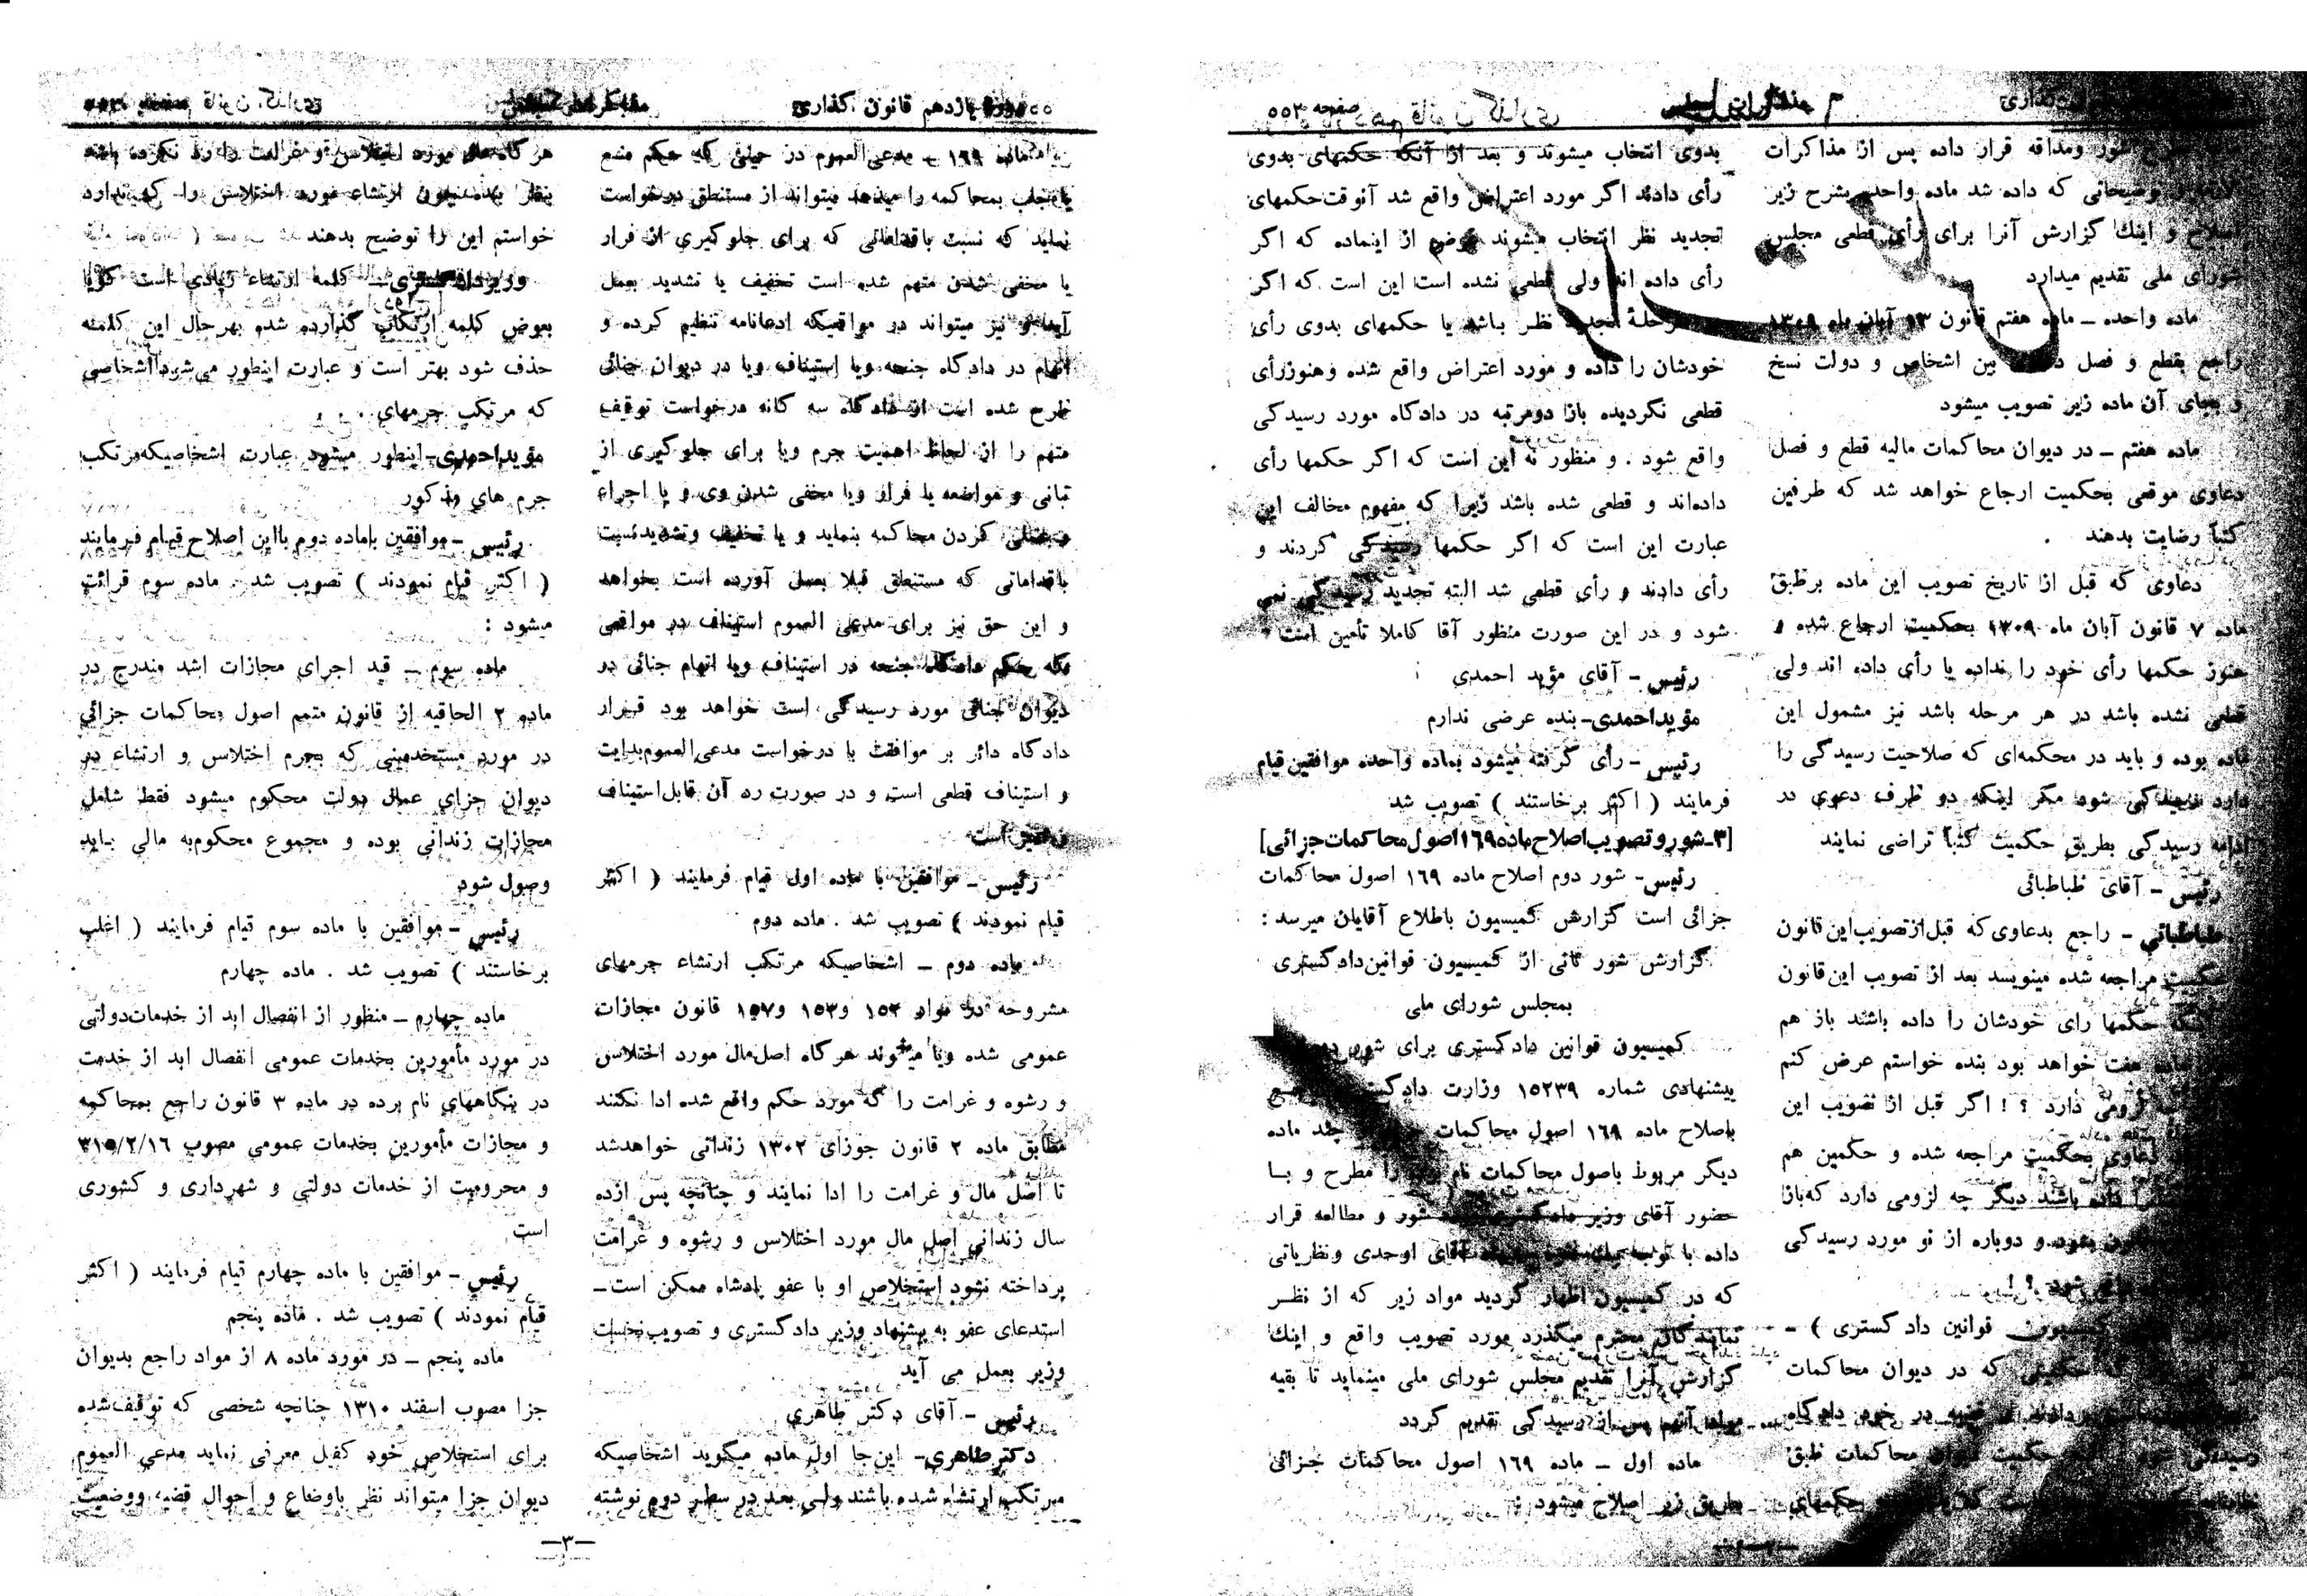 مذاکرات مجلس
صفحه ۳۵۵
شور ومداقه قرار داده پس از مذاکرات
توضیحاتی که داده شد ماده واحده بشرح زیر
اصلاح و اینك گزارش آنرا برای رأی قطعی مجلس
شورای ملی تقدیم میدارد
ماده واحده ــ ماده هفتم قانون ۱۳ آبان ماه ۱۳۰۹
راجع بقطع و فصل بین اشخاص و دولت نسخ
و بجای آن ماده زیر تصویب میشود
ماده هفتم ــ در دیوان محاکمات مالیه قطع و فصل
دعاوی موقعی بحکمیت ارجاع خواهد شد که طرفین
کتباً رضایت بدهند .
دعاوی که قبل از تاریخ تصویب این ماده برطبق
ماده ۷ قانون آبان ماه ۱۳۰۹ بحکمیت ارجاع شده و
هنوز حکمها رأی خود را نداده یا رأی داده اند ولی
قطعی نشده باشد در هر مرحله باشد نیز مشمول این
ماده بوده و باید در محکمه‌ای که صلاحیت رسیدگی را
دارد رسیدگی شود مگر اینکه دو طرف دعوی در
ادامه رسیدگی بطریق حکمیت کتباً تراضی نمایند
رئیس ــ آقای طباطبائی
طباطبائی ــ راجع بدعاوی که قبل از تصویب این قانون
بحکمیت مراجعه شده مینویسد بعد از تصویب این قانون
حکمها رای خودشان را داده باشند باز هم
خواهد بود بنده خواستم عرض کنم
لزومی دارد ؟ ! اگر قبل از تصویب این
دعاوی بحکمیت مراجعه شده و حکمین هم
داده باشند دیگر چه لزومی دارد که باز
بشود و دوباره از نو مورد رسیدگی
شود ؟ !
قوانین دادگستری ) ــ
که در دیوان محاکمات
در خود دادگاه
رسیدگی شود حکمیت دیوان محاکمات طبق
حکمهای
بدوی انتخاب میشوند و بعد از آنکه حکمهای بدوی
رأی دادند اگر مورد اعتراض واقع شد آنوقت حکمهای
تجدید نظر انتخاب میشوند غرض از اینماده که اگر
رأی داده اند ولی قطعی نشده است این است که اگر
مرحلهٔ تجدید نظر باشد یا حکمهای بدوی رأی
خودشان را داده و مورد اعتراض واقع شده و هنوز رأی
قطعی نگردیده باز دومرتبه در دادگاه مورد رسیدگی
واقع شود . و منظور نه این است که اگر حکمها رأی
داده‌اند و قطعی شده باشد زیرا که مفهوم مخالف این
عبارت این است که اگر حکمها رسیدگی کردند و
رأی دادند و رأی قطعی شد البته تجدید رسیدگی نمی
شود و در این صورت منظور آقا کاملا تأمین است
رئیس ــ آقای مؤید احمدی
مؤید احمدی ــ بنده عرضی ندارم
رئیس ــ رأی گرفته میشود بماده واحده موافقین قیام
فرمایند ( اکثر برخاستند ) تصویب شد
[۳ ــ شور و تصویب اصلاح ماده ۱۶۹ اصول محاکمات جزائی]
رئیس ــ شور دوم اصلاح ماده ۱۶۹ اصول محاکمات
جزائی است گزارش کمیسیون باطلاع آقایان میرسد :
گزارش شور ثانی از کمیسیون قوانین دادگستری
بمجلس شورای ملی
کمیسیون قوانین دادگستری برای شور
پیشنهادی شماره ۱۵۲۳۹ وزارت
باصلاح ماده ۱۶۹ اصول محاکمات چند ماده
دیگر مربوط باصول محاکمات را مطرح و با
حضور آقای وزیر دادگستری شور و مطالعه قرار
داده با آقای اوحدی ونظریاتی
که در کمیسیون اظهار گردید مواد زیر که از نظر
نمایندگان محترم میگذرد مورد تصویب واقع و اینك
گزارش آنرا تقدیم مجلس شورای ملی مینماید تا بقیه
مواد آنهم پس از رسیدگی تقدیم گردد
ماده اول ــ ماده ۱۶۹ اصول محاکمات جزائی
بطریق زیر اصلاح میشود :
دوره یازدهم قانون گذاری
ماده ۱۶۹ ــ مدعی‌العموم در حینی که حکم منع
یا جلب بمحاکمه را میدهد میتواند از مستنطق درخواست
نماید که نسبت باقداماتی که برای جلوگیری از فرار
یا مخفی شدن متهم شده است تخفیف یا تشدید بعمل
آید و نیز میتواند در مواقعیکه ادعانامه تنظیم کرده و
اتهام در دادگاه جنحه ویا استیناف ویا در دیوان جنائی
طرح شده است از دادگاه سه گانه درخواست توقیف
متهم را از لحاظ اهمیت جرم ویا برای جلوگیری از
تبانی و مواضعه یا فرار ویا مخفی شدن وی و یا اجراء
کردن محاکمه بنماید و یا تخفیف وتشدید نسبت
باقداماتی که مستنطق قبلا بعمل آورده است بخواهد
و این حق نیز برای مدعی العموم استیناف در مواقعی
که حکم دادگاه جنحه در استیناف ویا اتهام جنائی در
دیوان جنائی مورد رسیدگی است خواهد بود قرار
دادگاه دائر بر موافقت با درخواست مدعی العموم بدایت
و استیناف قطعی است و در صورت رد آن قابل استیناف
و تمیز است
رئیس ــ موافقین با ماده اول قیام فرمایند ( اکثر
قیام نمودند ) تصویب شد . ماده دوم
ماده دوم ــ اشخاصیکه مرتکب ارتشاء جرمهای
مشروحه در مواد ۱۵۲ و۱۵۳ و۱۵۷ قانون مجازات
عمومی شده ویا میشوند هرگاه اصل مال مورد اختلاس
و رشوه و غرامت را که مورد حکم واقع شده ادا نکنند
مطابق ماده ۲ قانون جوزای ۱۳۰۲ زندانی خواهد شد
تا اصل مال و غرامت را ادا نمایند و چنانچه پس از ده
سال زندانی اصل مال مورد اختلاس و رشوه و غرامت
پرداخته نشود استخلاص او با عفو پادشاه ممکن است ــ
استدعای عفو به پیشنهاد وزیر دادگستری و تصویب نخست
وزیر بعمل می آید
رئیس ــ آقای دکتر طاهری
دکتر طاهری ــ این‌جا اول ماده میگوید اشخاصیکه
مرتکب ارتشاء شده باشند ولی بعد در سطر دوم نوشته
هرگاه مال مورد اختلاس و غرامت را رد نکرده باشد
بنظر بنده بدون ارتشاء مورد اختلاس را که ندارد
خواستم این را توضیح بدهند
وزیر دادگستری ــ کلمه ارتشاء زیادی است گویا
بعوض کلمه ارتکاب گذارده شده بهرحال این کلمه
حذف شود بهتر است و عبارت اینطور می‌شود اشخاصی
که مرتکب جرمهای . . .
مؤید احمدی ــ اینطور میشود عبارت اشخاصیکه مرتکب
جرم های مذکور
رئیس ــ موافقین باماده دوم بااین اصلاح قیام فرمایند
( اکثر قیام نمودند ) تصویب شد . ماده سوم قرائت
میشود :
ماده سوم ــ قید اجرای مجازات اشد مندرج در
ماده ۲ الحاقیه از قانون متمم اصول محاکمات جزائی
در مورد مستخدمینی که بجرم اختلاس و ارتشاء در
دیوان جزای عمال دولت محکوم میشود فقط شامل
مجازات زندانی بوده و مجموع محکوم‌به مالی باید
وصول شود
رئیس ــ موافقین با ماده سوم قیام فرمایند ( اغلب
برخاستند ) تصویب شد . ماده چهارم
ماده چهارم ــ منظور از انفصال ابد از خدمات دولتی
در مورد مأمورین بخدمات عمومی انفصال ابد از خدمت
در بنگاههای نام برده در ماده ۳ قانون راجع بمحاکمه
و مجازات مأمورین بخدمات عمومی مصوب ۳۱۵/۲/۱۶
و محرومیت از خدمات دولتی و شهرداری و کشوری
است
رئیس ــ موافقین با ماده چهارم قیام فرمایند ( اکثر
قیام نمودند ) تصویب شد . ماده پنجم
ماده پنجم ــ در مورد ماده ۸ از مواد راجع بدیوان
جزا مصوب اسفند ۱۳۱۰ چنانچه شخصی که توقیف شده
برای استخلاص خود کفیل معرفی نماید مدعی العموم
دیوان جزا میتواند نظر باوضاع و احوال قضیه ووضعیت
ــ۳ــ